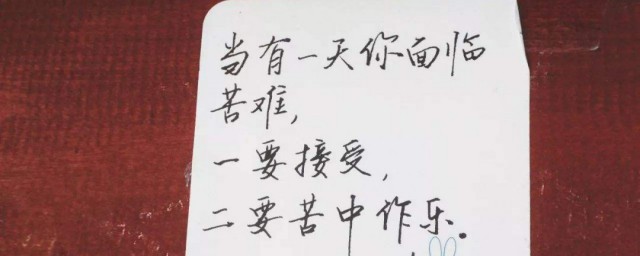 当有一天你面临
苦难,
一要接受,
二要苦中作乐.